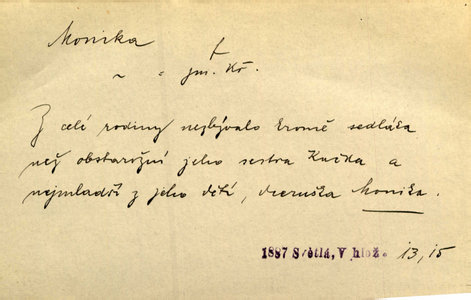 Monika †
~ " jm. Kř.
Z celé rodiny nezbývalo kromě sedláka
než obstarožní jeho sestra Kačka a
nejmladší z jeho dětí, dceruška Monika.
1887 Světlá, V hlož. 13, 15